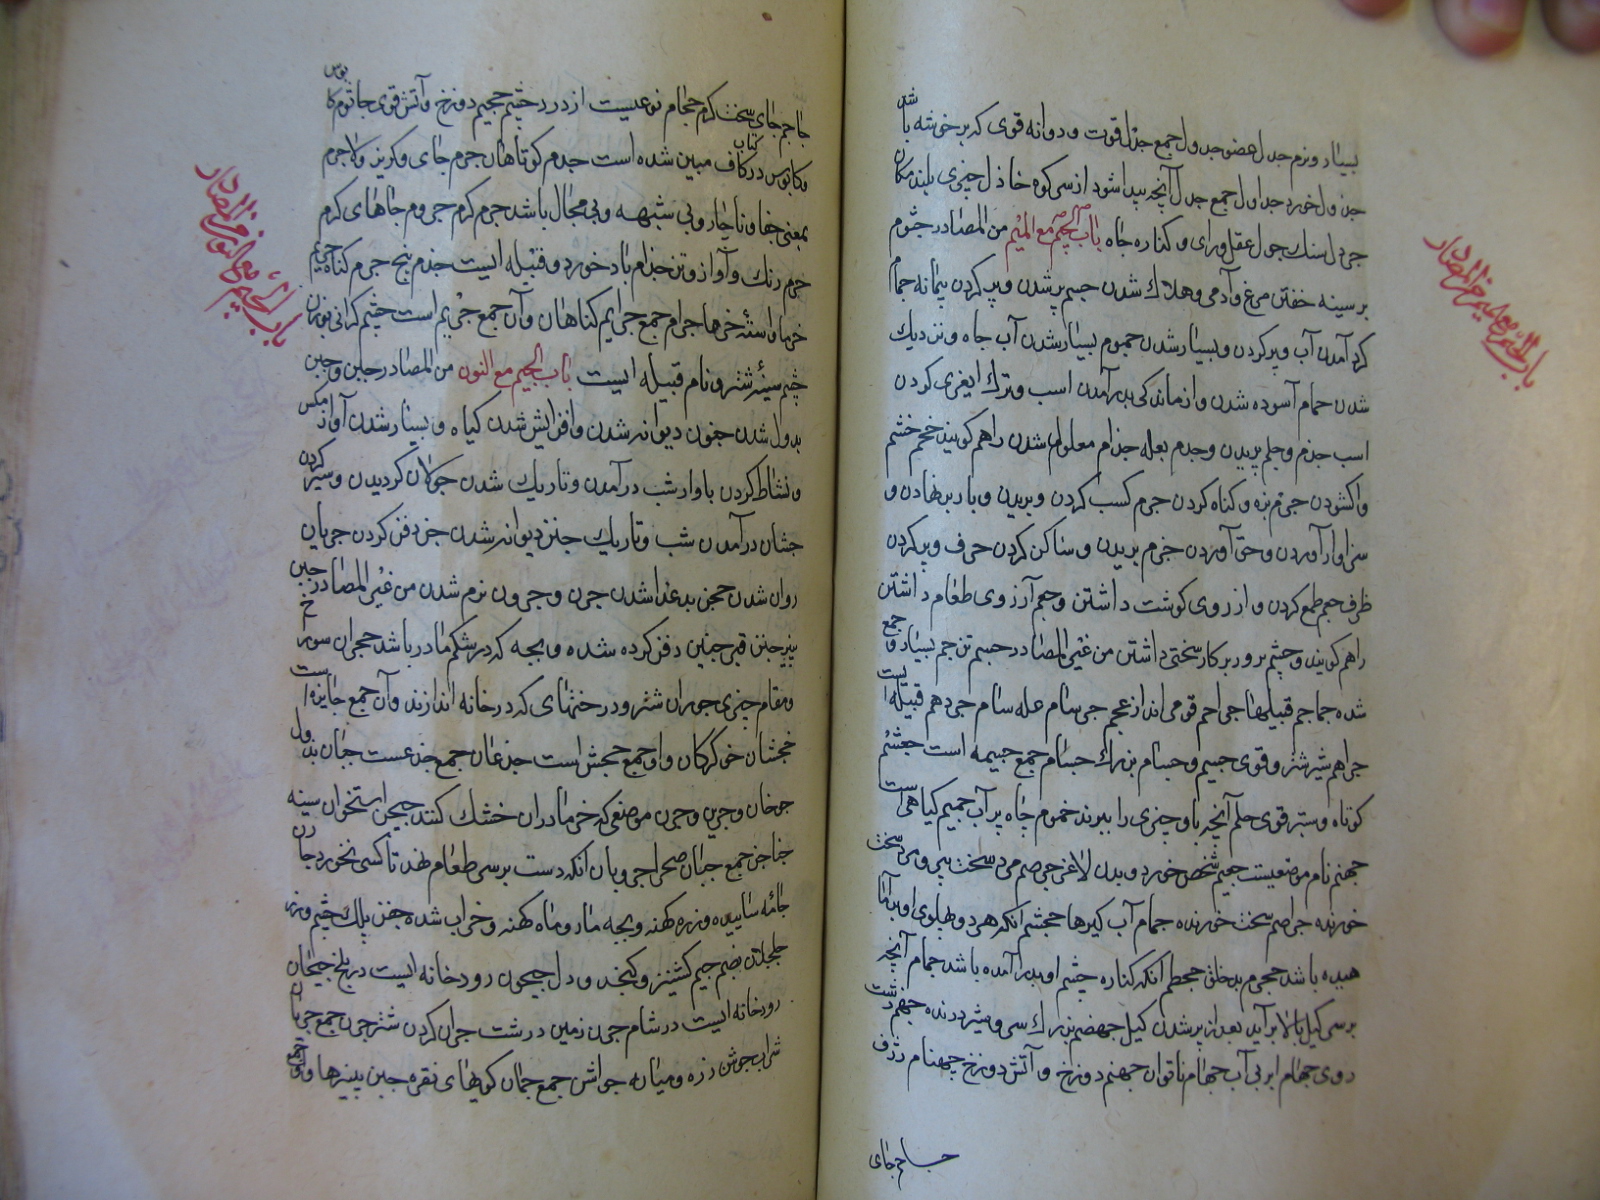 بسیار و نرم جدل عضو جدول جمع جدل قوت و دوانه قوی که بر خوشه باشد
جدول خورد جداول جمع جدل آنچه پیدا شود از سی کوه خاذل چیزی بلند مکان
جردل سنك جول عقل و رای و کناره جاه باب الجیم مع المیم من المصادر جثوم
بر سینه خفتن مرغ و آدمی و هلاك شدن جسم پر شدن و پر کردن پیمانه جمام
کرد آمدن آب و پر کردن و بسیار شدن جموم بسیار شدن آب جاه و نزدیك
شدن جمام آسوده شدن و از ماندکی بدر آمدن اسب و ترك ایغری کردن
اسب جذم و جلم بریدن و جذم بعله جذام معلول شدن راهم کویند جخم خشم
واکشودن جرم بزه و کناه کردن جرم کسب کردن و بریدن و بار بر نهادن و
سزاوار آوردن و حق آوردن جزم بریدن و ساکن کردن حرف و پر کردن
ظرف جعم طمع کردن و از روی کوشت داشتن و جعم آرزوی طعام داشتن
راهم کویند و جشم بر روی کار سختی داشتن من غیر المصادر جسم تن جم بسیار و جمع
شده جماجم قبیلها جراجم قومی اند از عجم جرسام عله سام جرهم قبیله ایست
جراهم شیر شتر و قوی جسیم و جسام بزرك جسام جمع جسیمه است جعشم
کوتاه و ستبر قوی جلم آنچه باو چیزی را ببرند جموم چاه پر آب جمیم کیاهی است
جهنم نام موضعیست جعیم شخص خورد و بدن لاغر جرصم مردی سخت پیر و مردی سخت
خورنده جراصم سخت خورنده جمام آب کیرها جحشم انکه هر دو پهلوی او بر آما
هیده باشد جحرم بد خلق جحظم انکه کناره چشم او بدر آمده باشد جمام آنچه
بر سر کیل بالا بر آید بعد از پر شدن کیل جهضم بزرك سر و شیر درنده جهم درشت
روی جهام ابر بی آب جهام ناتوان جهنم دوزخ و آتش دوزخ جهنام ژرف
جاحم جای
جاحم جای سخت کرم جحام نوعیست از درد چشم جحیم دوزخ و آتش قوی جاثوم کابوس
و کابوس در کتاب کاف مبین شده است جذم کوتاهان جرم جای و کریز و لاجرم
بمعنی حقا و ناچار و بی شبهه و بی مجال باشد جرم کرم جروم جاهای کرم
جرم رنك و آواز و تن جذام باد خورد و قبیله ایست جذم بیخ جرم کناه جریم
خرما و استه خرما جرام جمع جرایم کناهان و آن جمع جریم است جشم کرانی بوزن
چشم سینه شتر و نام قبیله ایست باب الجیم مع النون من المصادر جبن و جبن
بددل شدن جنون دیوانه شدن و افزایش شدن کیاه و بسیار شدن آواز مکس
و نشاط کردن باواز شب در آمدن و تاریك شدن جولان کردیدن و سیر کردن
جنان در آمدن شب و تاریك جنن دیوانه شدن جزدفن کردن جریان
روان شدن جحن بد غذا شدن جرن و جرون نرم شدن من غیر المصادر جبن
پنیر جنن قبر جنین دفن کرده شده و بچه که در شکم مادر باشد جحران سوراخ
و مقام چیزی جوران شتر و درختهای که در خانه اندازند و آن جمع جایزه است
جحشان خر کرکان و او جمع جحش است جذعان جمع جذعست جبان بددل
جوخان و جرین و جرن موضعی که خرما در ان خشك کنند جنجن استخوان سینه
جناجن جمع جبان صحرا جردبان انکه دست بر سر طعام نهد تا کسی نخورد جارن
جامه ساییده و زره کهنه و بچه مار و ماه کهنه و خراب شده جفن پلك چشم و رز
جلجلان بضم جیم کشنیز و کنجد و دل جیحون رودخانه ایست در بلخ جیحان
رودخانه ایست در شام جرن زمین درشت جران کردن شتر جرن جمع جریان
شراب جوشن زره و میانه جواشن جمع جمان کویهای نقره جبن پنیرها و او جمع
باب الجیم مع المیم من المصادر
باب الجیم مع النون من المصادر